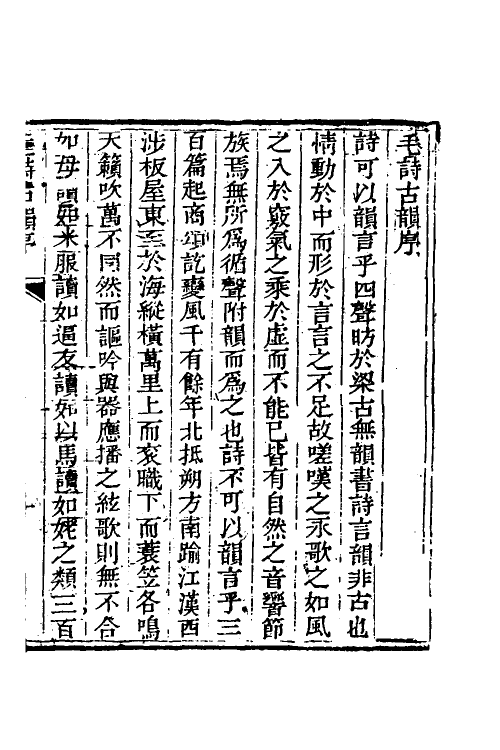 毛詩古韻序
詩可以韻言乎四聲昉於梁古無韻書詩言韻非古也
情動於中而形於言言之不足故嗟嘆之永歌之如風
之入於竅氣之乘於虛而不能已皆有自然之音響節
族焉無所爲循聲附韻而爲之也詩不可以韻言乎三
百篇起商頌訖變風千有餘年北抵朔方南踰江漢西
涉板屋東至於海縱橫萬里上而衮職下而蓑笠各鳴
天籟吹萬不同然而謳吟與器應播之絃歌則無不合
如母讀如米服讀如逼友讀如以馬讀如姥之類三百
毛詩古韻序